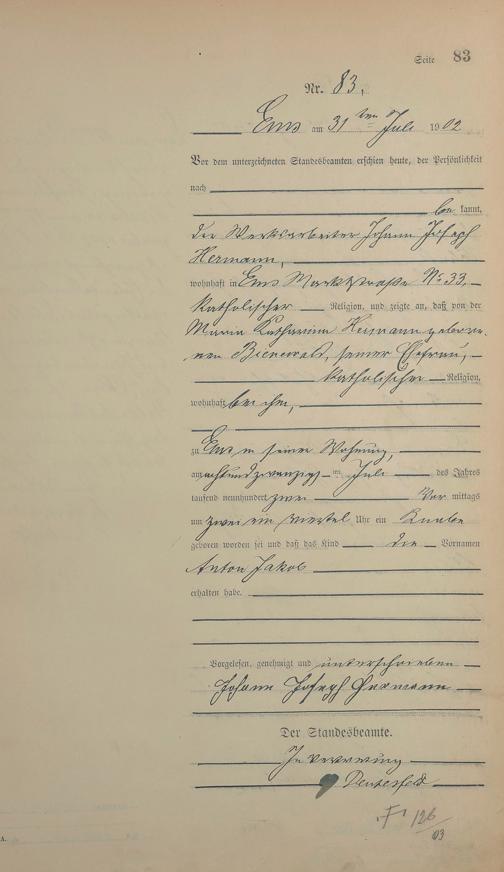 Seite 83
Nr. 83.
Ems am 31ten Juli 1902
Vor dem unterzeichneten Standesbeamten erschien heute, der Persönlichkeit
nach
be kannt,
der Werksarbeiter Johann Joseph
Hermann,
wohnhaft in Ems Marktstraße No 33,
katholischer Religion, und zeigte an, daß von der
Maria Katharina Hermann gebore-
nen Bienewald, seiner Ehefrau,
katholischer Religion,
wohnhaft bei ihm,
zu Ems in seiner Wohnung,
am achtundzwanzigsten Juli des Jahres
tausend neunhundert zwei Vor mittags
um zwei ein viertel Uhr ein Knabe
geboren worden sei und daß das Kind die Vornamen
Anton Jakob
erhalten habe.
Vorgelesen, genehmigt und unterschrieben
Johann Joseph Hermann
Der Standesbeamte.
In Vertretung
126/03
A.